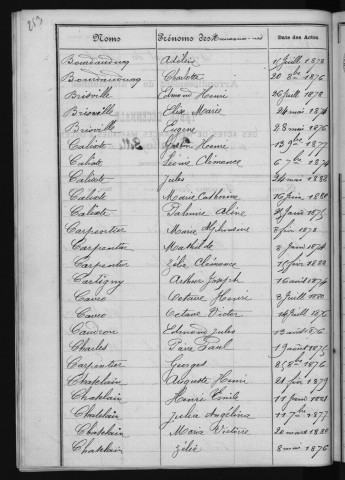 253
Noms Prénoms des Dates des Actes
Adéline Juill 1878
Charlotte 20 8bre 1876
Brisville Edmond Henri 26 Juill 1878
Brisville Elise Marie 24 mai 1874
Brisville Eugène 28 mai 1876
Caliste Gaston Henri 13 9bre 1877
Caliste Léonie Clémence 6 7bre 1874
Caliste Jules 24 mai 1882
Caliste Marie Catherine 16 Juin 1880
Caliste Palmire Aline Janv 1875
Carpentier Marie Alphonsine 8 fév 1878
Carpentier Mathilde 8 Janv 1874
Carpentier Zélie Clémence 15 fév 1882
Cartigny Arthur Joseph 16 août 1874
Cavro Octave Henri 8 Juill 1880
Cavro Octave Victor Juill 1876
Caudron Edmond Jules 12 août 1876
Charles Paul 1 août 1875
Carpentier Georges 8bre 1876
Chatelain Auguste Henri 21 fév 1879
Chatelain Henri Emile 11 Janv 1881
Chatelain Julia Angélina 11 7bre 1877
Chatelain Maria Victoire 20 mars 1880
Chatelain Zélie 8 mai 1876